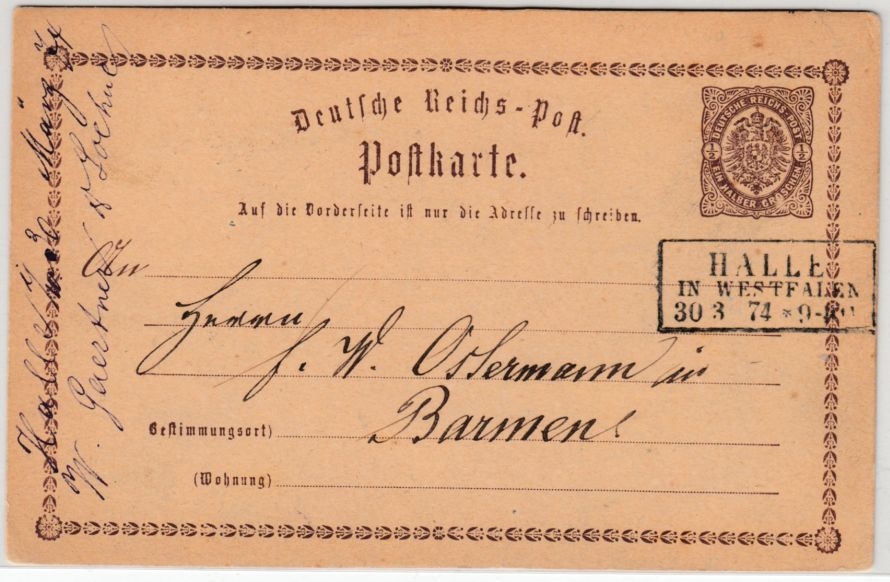 Deutsche Reichs-Post.
Postkarte.
Auf die Vorderseite ist nur die Adresse zu schreiben.
DEUTSCHE REICHS-POST
½ ½
EIN HALBER GROSCHEN
HALLE
IN WESTFALEN
30 3 74 * 9-
An
Herrn
F. W. Ostermann in
Bestimmungsort) Barmen
(Wohnung)
Halle März 74
W. Gaertner &